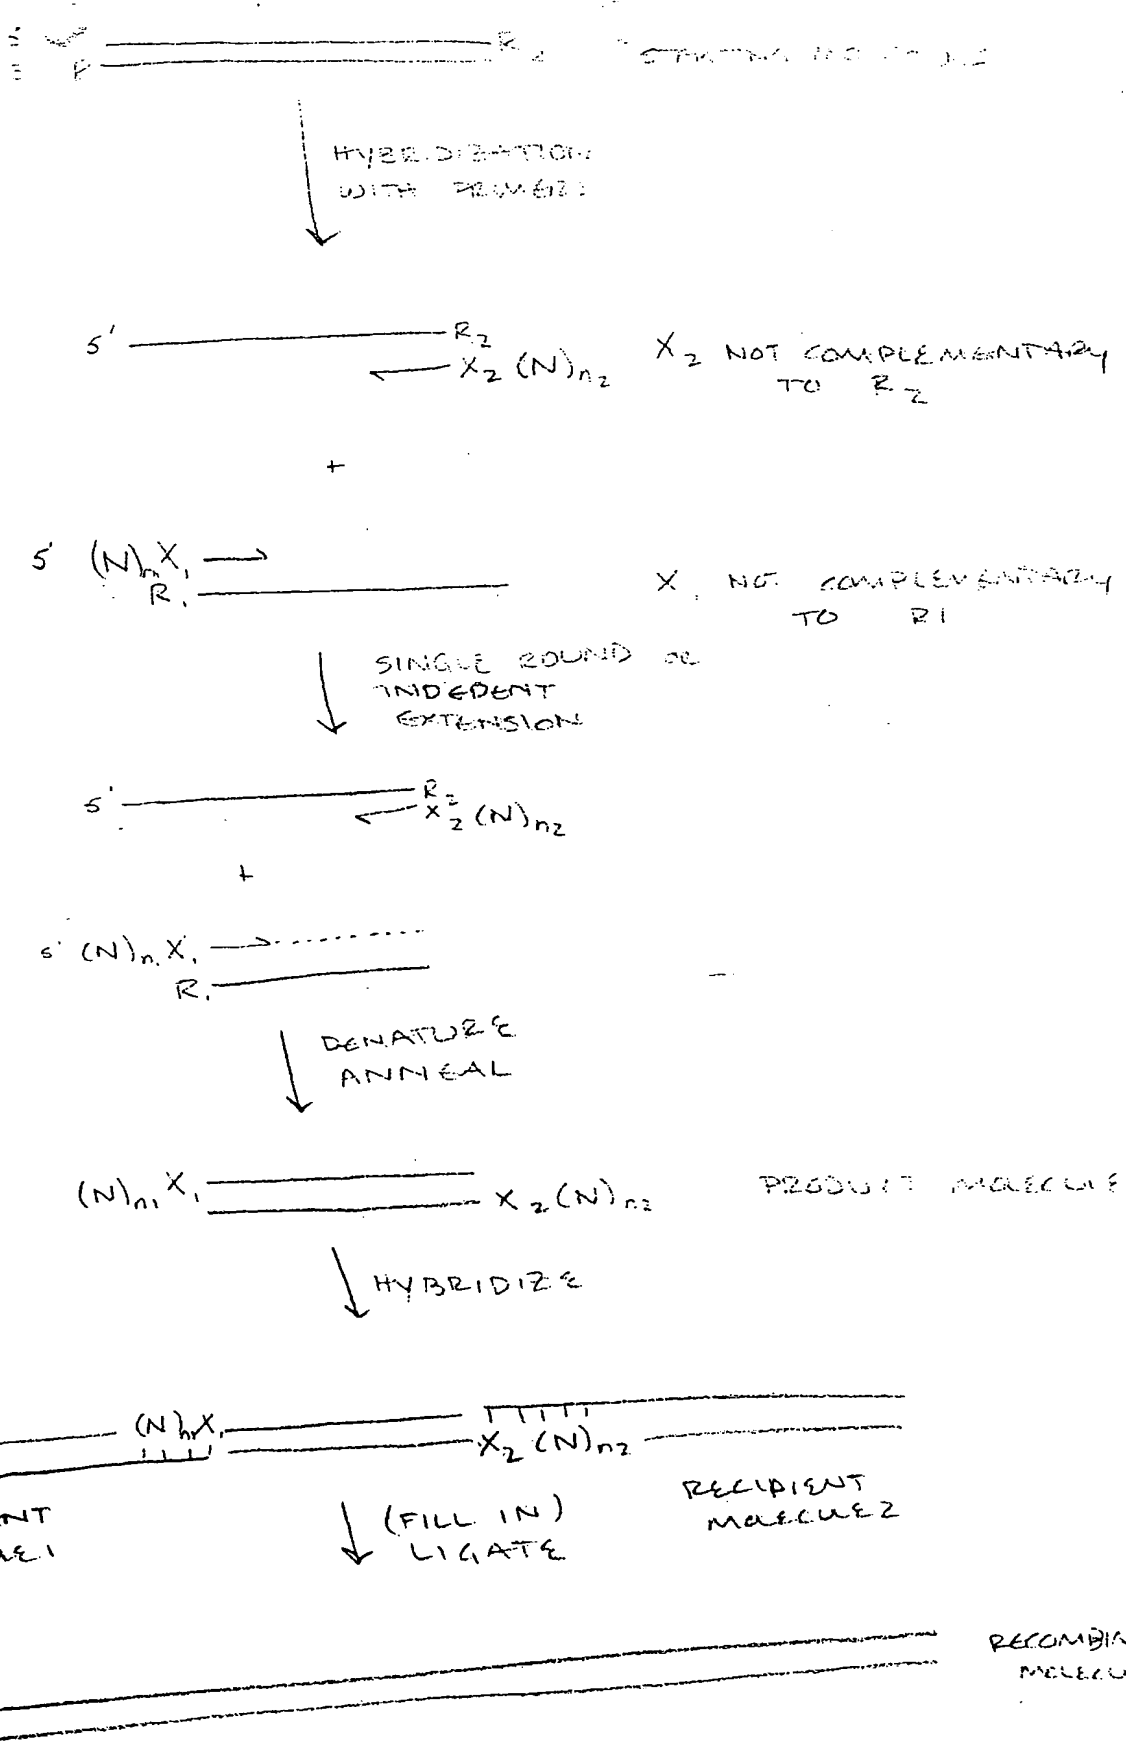 R2
STARTING
HYBRIDIZATION
WITH PRIMERS
5' R2
X2 (N)n2
X2 NOT COMPLEMENTARY
TO R2
+
5' (N)n1 X1
R1
X1 NOT COMPLEMENTARY
TO R1
SINGLE ROUND OR
INDEPENT
EXTENSION
5' R2
X2 (N)n2
+
5' (N)n1 X1
R1
DENATURE
ANNEAL
(N)n1 X1
X2 (N)n2
PRODUCT MOLECULE
HYBRIDIZE
(N)n1 X1
X2 (N)n2
RECIPIENT
MOLECULE 2
(FILL IN)
LIGATE
RECOMBIN
MOLECU